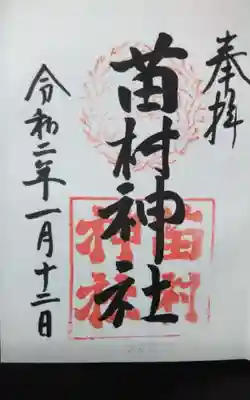 奉拝
苗村神社
苗村
神社
令和二年一月十二日